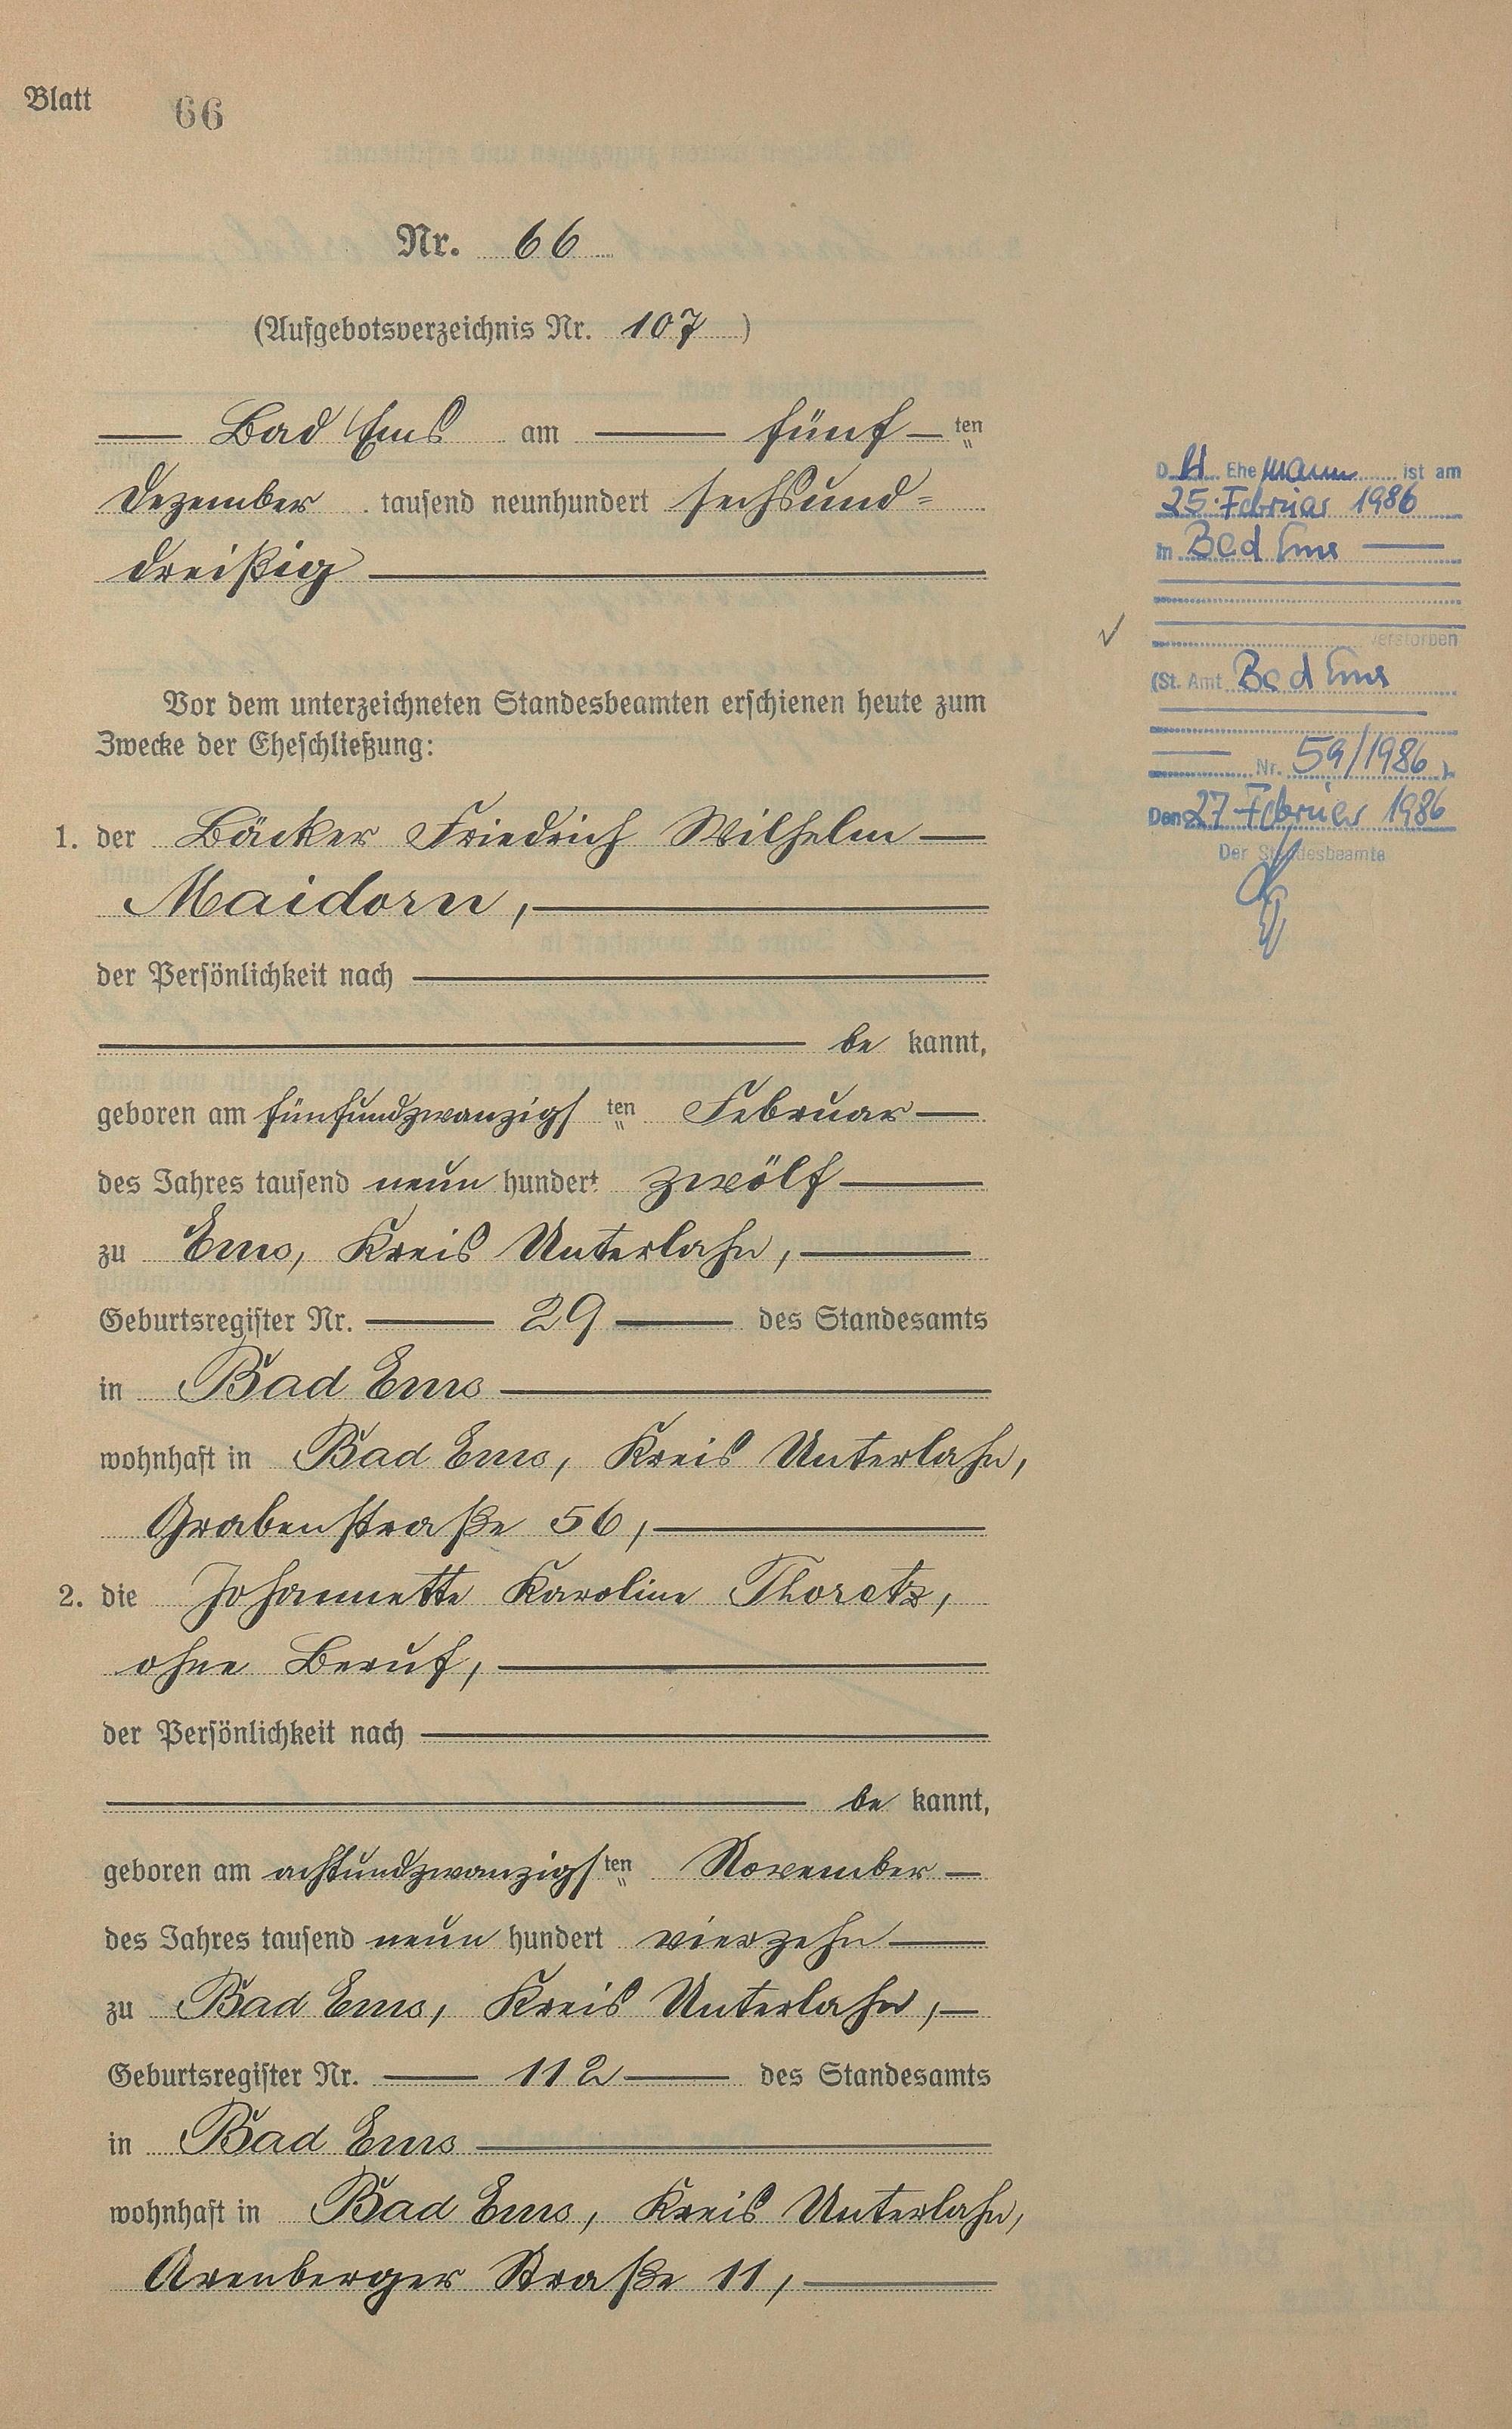 Blatt 66
Nr. 66
(Aufgebotsverzeichnis Nr. 107)
Bad Ems am fünften
Dezember tausend neunhundert sechsund=
dreißig
Vor dem unterzeichneten Standesbeamten erschienen heute zum
Zwecke der Eheschließung:
1. der Bäcker Friedrich Wilhelm
Maidorn,
der Persönlichkeit nach
be kannt,
geboren am fünfundzwanzigsten Februar
des Jahres tausend neun hundert zwölf
zu Ems, Kreis Unterlahn,
Geburtsregister Nr. 29 des Standesamts
in Bad Ems
wohnhaft in Bad Ems, Kreis Unterlahn,
Grabenstraße 56,
2. die Johannette Karoline Thoretz,
ohne Beruf,
der Persönlichkeit nach
be kannt,
geboren am achtundzwanzigsten November
des Jahres tausend neun hundert vierzehn
zu Bad Ems, Kreis Unterlahn,
Geburtsregister Nr. 112 des Standesamts
in Bad Ems
wohnhaft in Bad Ems, Kreis Unterlahn,
Arenberger Straße 11,
Der Ehemann ist am
25. Februar 1986
in Bad Ems
verstorben
(St. Amt Bad Ems
Nr. 59/1986)
Den 27. Februar 1986
Der Standesbeamte